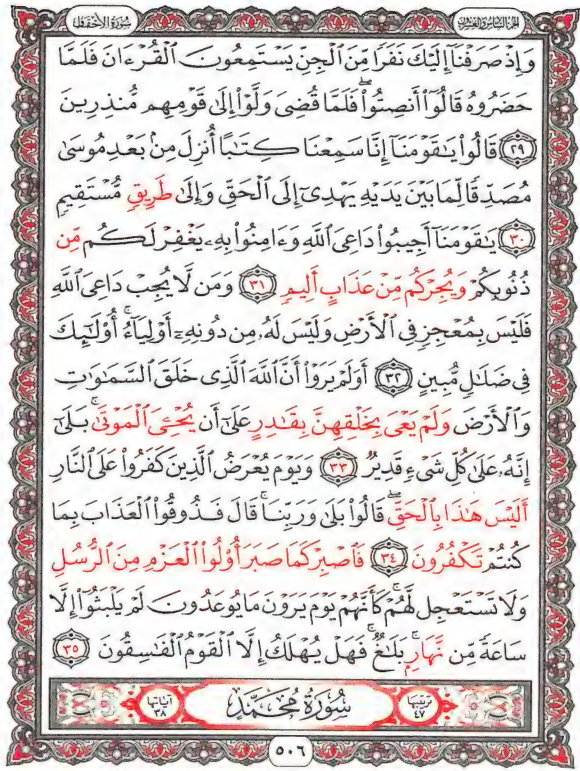 سُورَةُ الأَحْقَافِ
الجزء السادس والعشرون
وَإِذْ صَرَفْنَآ إِلَيْكَ نَفَرًا مِّنَ ٱلْجِنِّ يَسْتَمِعُونَ ٱلْقُرْءَانَ فَلَمَّا
حَضَرُوهُ قَالُوٓا۟ أَنصِتُوا۟ ۖ فَلَمَّا قُضِىَ وَلَّوْا۟ إِلَىٰ قَوْمِهِم مُّنذِرِينَ
٢٩ قَالُوا۟ يَٰقَوْمَنَآ إِنَّا سَمِعْنَا كِتَٰبًا أُنزِلَ مِنۢ بَعْدِ مُوسَىٰ
مُصَدِّقًا لِّمَا بَيْنَ يَدَيْهِ يَهْدِىٓ إِلَى ٱلْحَقِّ وَإِلَىٰ طَرِيقٍ مُّسْتَقِيمٍ
٣٠ يَٰقَوْمَنَآ أَجِيبُوا۟ دَاعِىَ ٱللَّهِ وَءَامِنُوا۟ بِهِۦ يَغْفِرْ لَكُم مِّن
ذُنُوبِكُمْ وَيُجِرْكُم مِّنْ عَذَابٍ أَلِيمٍ ٣١ وَمَن لَّا يُجِبْ دَاعِىَ ٱللَّهِ
فَلَيْسَ بِمُعْجِزٍ فِى ٱلْأَرْضِ وَلَيْسَ لَهُۥ مِن دُونِهِۦٓ أَوْلِيَآءُ ۚ أُو۟لَٰٓئِكَ
فِى ضَلَٰلٍ مُّبِينٍ ٣٢ أَوَلَمْ يَرَوْا۟ أَنَّ ٱللَّهَ ٱلَّذِى خَلَقَ ٱلسَّمَٰوَٰتِ
وَٱلْأَرْضَ وَلَمْ يَعْىَ بِخَلْقِهِنَّ بِقَٰدِرٍ عَلَىٰٓ أَن يُحْۦِىَ ٱلْمَوْتَىٰ ۚ بَلَىٰٓ
إِنَّهُۥ عَلَىٰ كُلِّ شَىْءٍ قَدِيرٌ ٣٣ وَيَوْمَ يُعْرَضُ ٱلَّذِينَ كَفَرُوا۟ عَلَى ٱلنَّارِ
أَلَيْسَ هَٰذَا بِٱلْحَقِّ ۖ قَالُوا۟ بَلَىٰ وَرَبِّنَا ۚ قَالَ فَذُوقُوا۟ ٱلْعَذَابَ بِمَا
كُنتُمْ تَكْفُرُونَ ٣٤ فَٱصْبِرْ كَمَا صَبَرَ أُو۟لُوا۟ ٱلْعَزْمِ مِنَ ٱلرُّسُلِ
وَلَا تَسْتَعْجِل لَّهُمْ ۚ كَأَنَّهُمْ يَوْمَ يَرَوْنَ مَا يُوعَدُونَ لَمْ يَلْبَثُوٓا۟ إِلَّا
سَاعَةً مِّن نَّهَارٍۭ ۚ بَلَٰغٌ ۚ فَهَلْ يُهْلَكُ إِلَّا ٱلْقَوْمُ ٱلْفَٰسِقُونَ ٣٥
ترتيبها ٤٧ سُورَةُ مُحَمَّدٍ آياتها ٣٨
٥٠٦